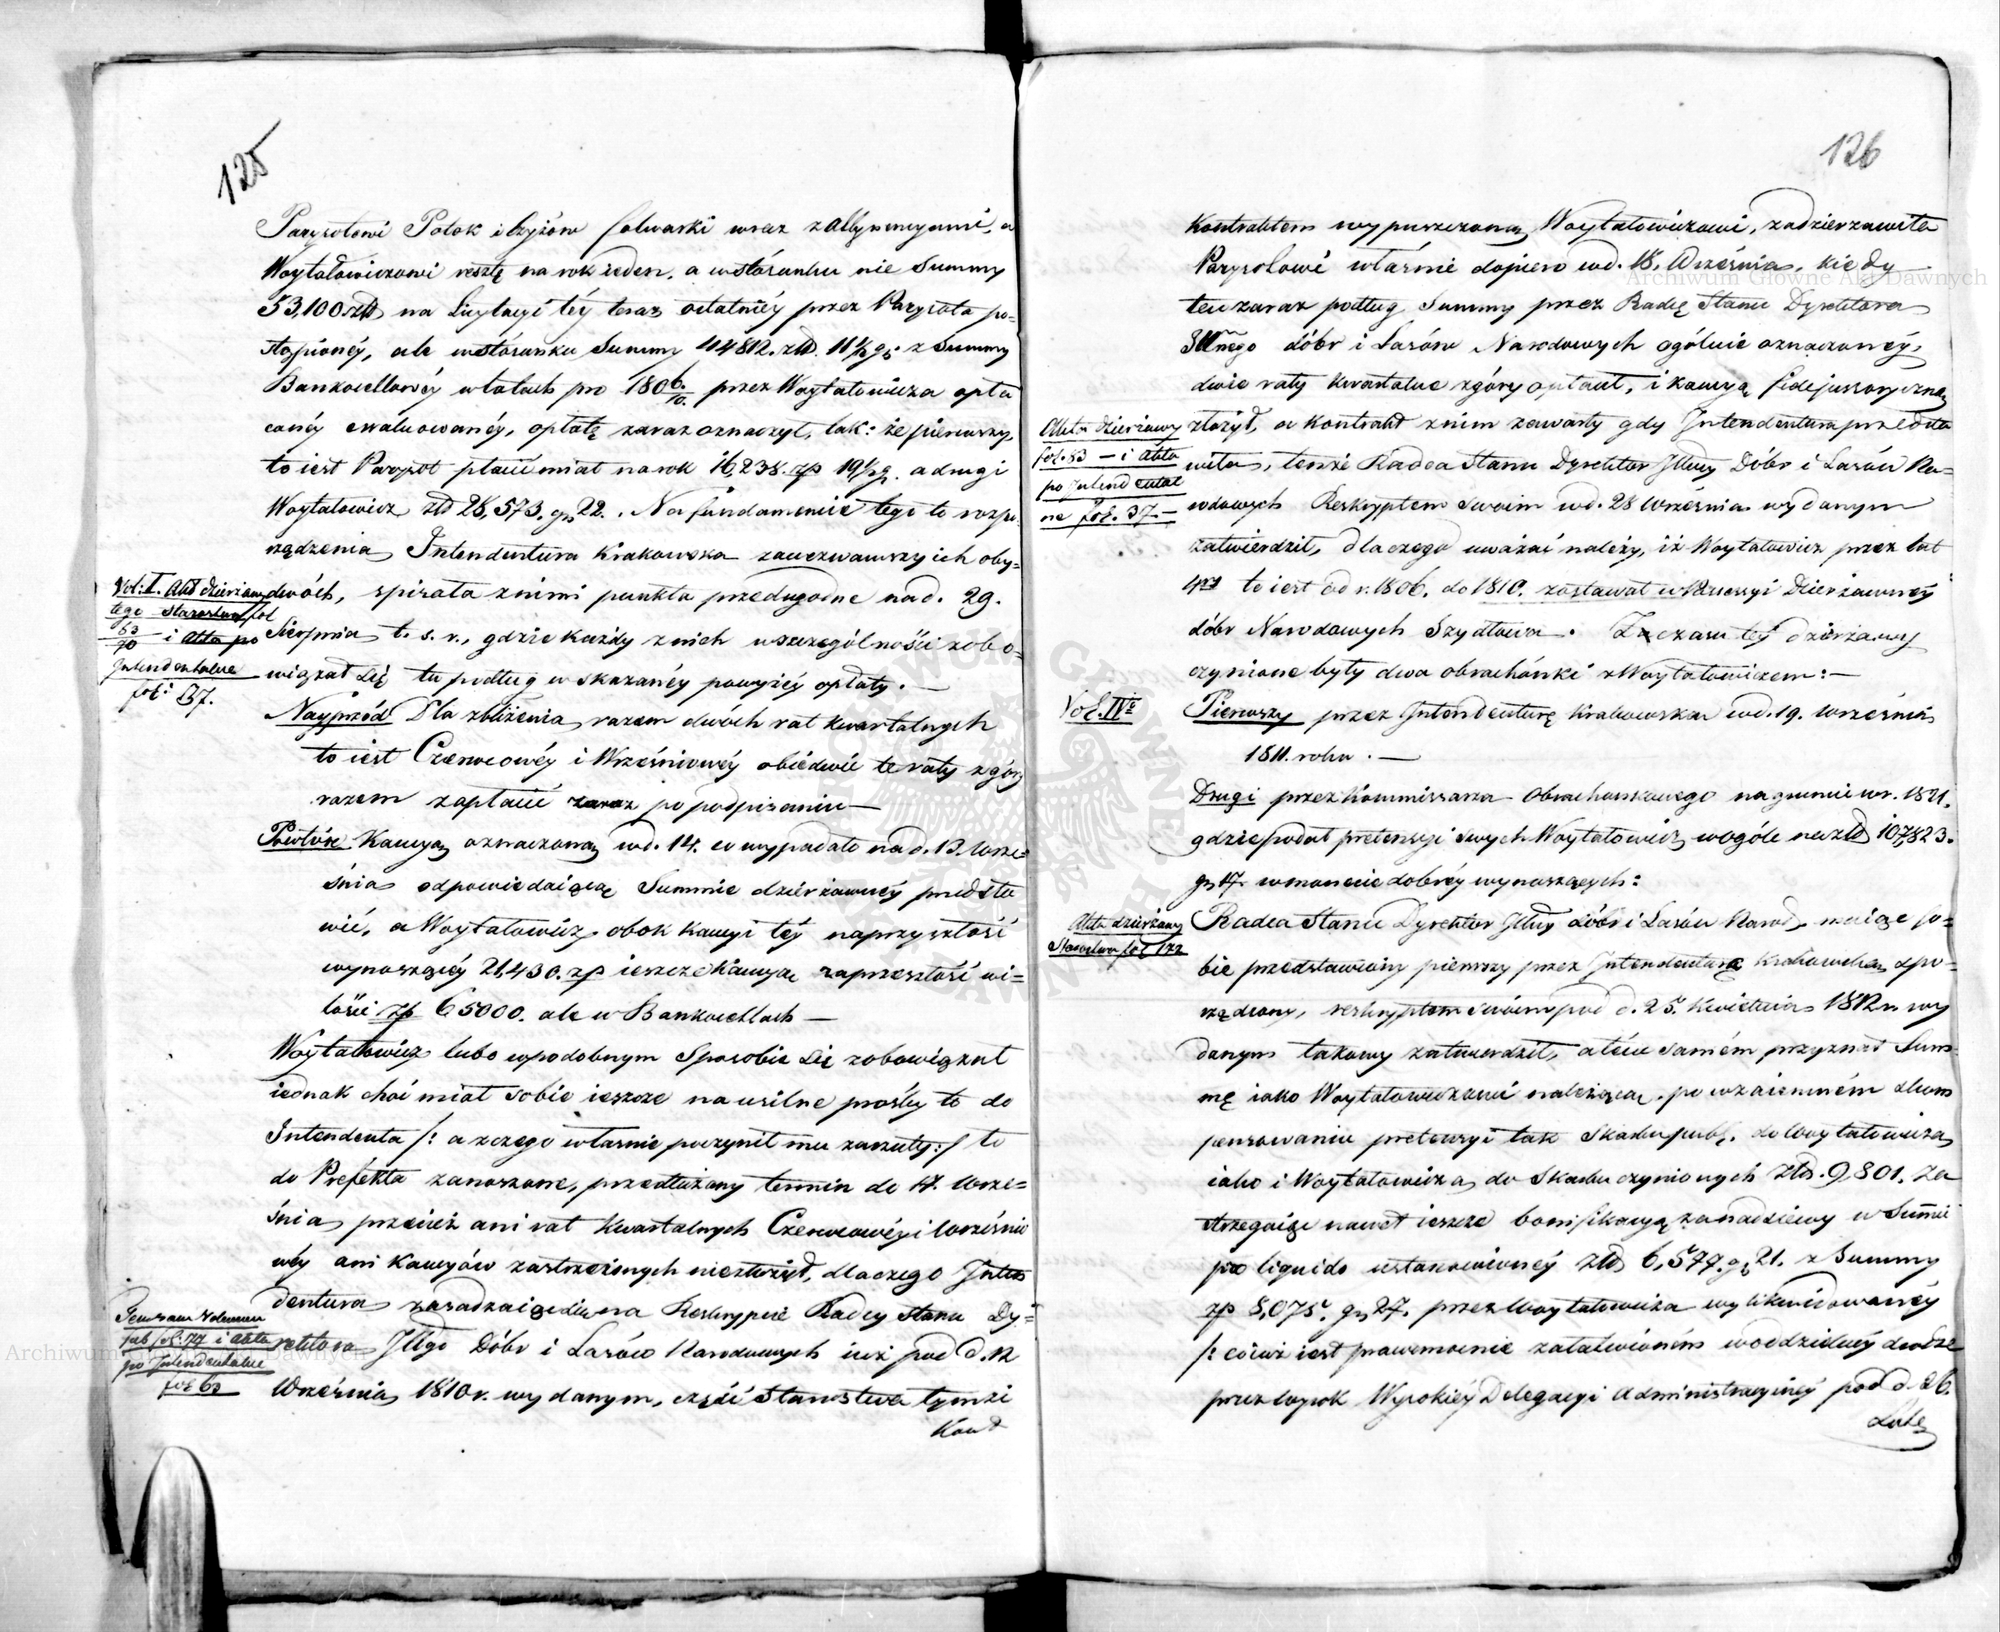 125
Parysotowi Potok i Czyżów folwarki wraz z attynencyami, a
Woytatowiczowi resztę na rok ieden, a w stósunku nie Summy
53,100 złł na Licytacyi téy teraz ostatniéy przez Parysota po=
stąpionéy, ale w stósunku Summy 44812. złł. 11 1/2 gr z Summy
Bankocetlowéy w latach pro 1806/10. przez Woytatowicza opła
conéy ewaluowanéy, opłatę zaraz oznaczył, tak: że pierwszy,
to iest Parysot płacić miał na rok 16,238. zp 19 1/2 g. a drugi
Woytatowicz złł 28,573. gr 22. Na fundamencie tego to rozpo
rządzenia Intendentura Krakowska zawezwawszy ich oby=
dwóch, spisała z nimi punkta przedugodne na d. 29.
Sierpnia t. s. r., gdzie każdy z nich w szczególności zobo=
wiązał się tu podług wskazanéy powyżéy opłaty. —
Vol: I. Akt dzierżaw
tego Starostwa fol
63/70 — i akta po
Intendentalne
fol: 37.
Nayprzód Dla zbliżenia razem dwóch rat kwartalnych
to iest Czerwcowéy i Wrześniowéy obiedwie te raty z góry
razem zapłacić zaraz po podpisaniu —
Powtóre Kaucyą oznaczoną od. 14. co wypadało na d. 13. Wrze=
śnia odpowiedaiącą Summie dzierżawnéy przedsta
wić, a Woytatowicz obok Kaucyi téy naprzyszłość
wynoszącéy 21,430. zp ieszcze Kaucyą zaprzeszłość wi=
lości zp 65000. ale w Bankocetlach —
Woytatowicz lubo w podobnym Sposobie się zobowiązał
iednak choć miał sobie ieszcze na usilne prośby to do
Intendenta /: a z czego własnie poczynił mu zarzuty :/ to
do Prefekta zanoszone, przedłużany termin do 17. Wrze=
śnia przecież ani rat Kwartalnych Czerwcowéy i Wrześnio
wéy ani Kaucyów zastrzeżonych nie złożył, dlaczego Inten
dentura zasadzaiąc się na Reskrypcie Radcy Stanu Dy=
rektora Jllgo Dóbr i Lasów Narodowych iuż pod d. 12
Września 1810 r. wydanym, część Starostwa tymże
Kont
Tenżsam Volumen
sub fol: 77 i akta
po Intendentalne
fol 62
126
Kontraktem wypuszczoną Woytatowiczowi, zadzierzawiła
Parysotowi własnie dopiero od. 18. Września, kiedy
ten zaraz podług Summy przez Radcę Stanu Dyrektora
Jllnego dóbr i Lasów Narodowych ogólnie oznaczonéy,
dwie raty kwartalne z góry opłacił, i kaucyą fidejussoryczną
złożył, a Kontrakt z nim zawarty gdy Intendentura przedsta
wiła, tenże Radca Stanu Dyrektor Jllny Dóbr i Lasów Na=
rodowych Reskryptem swoim od. 28 Września wydanym
zatwierdził, dlaczego uważać należy, iż Woytatowicz przez lat
4ry to iest od r. 1806. do 1810. zostawał w Possessyi Dzierżawnéy
dóbr Narodowych Szydłowa. Za czasu téy dzierżawy
czynione były dwa obrachónki z Woytatowiczem: —
Akta dzierżawy
fol. 83 — i akta
po Intendental
ne fol. 37. —
Vol. IV.
Pierwszy przez Intendenturę Krakowską od. 19. Września
1811. roku. —
Drugi przez Kommissarza Obrachunkowego na gruncie w r. 1821.
gdzie podał pretensyi swych Woytatowicz wogóle na złł 107,823.
gr 17. w monecie dobréy wynoszących:
Akta dzierżawy
Starostwa fol 122
Radca Stanu Dyrektor Jllny dóbr i Lasów Narod. maiąc so=
bie przedstawiony pierwszy przez Intendenturę Krakowską spo=
rządzony, reskryptem swoim pod d. 25. Kwietnia 1812 r. wy
danym takowy zatwierdził, a tém samém przyznał Sum=
mę iako Woytatowiczowi należącą, po wzaiemném skom
pensowaniu pretensyi tak Skarbu publ. do Woytatowicza,
iako i Woytatowicza do Skarbu czynionych złł. 9,801. Za
strzegaiąc nawet ieszcze bonifikacyą za nadsiewy w Summie
pro liquido ustanowionéy złł 6,577. gr 21. z Summy
zp 8,075. gr 27. przez Woytatowicza wylikwidowanéy
/: co iuż iest prawomocnie załatwioném w oddzielnéy drodze
przez wyrok Wysokiéy Delegacyi Administracyinéy pod d. 26.
Lute